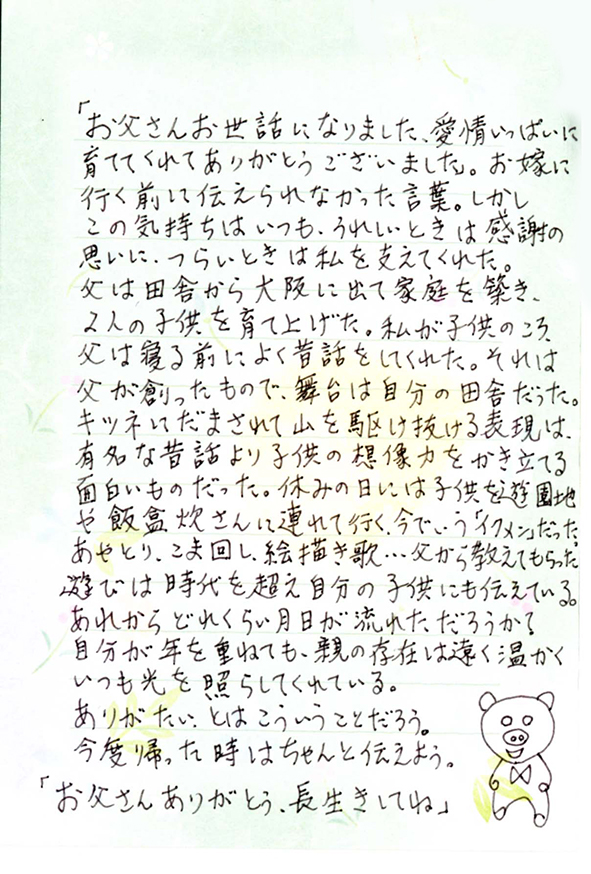 「お父さんお世話になりました、愛情いっぱいに
育ててくれてありがとうございました」。お嫁に
行く前に伝えられなかった言葉。しかし
この気持ちはいつも、うれしいときは感謝の
思いに、つらいときは私を支えてくれた。
父は田舎から大阪に出て家庭を築き、
2人の子供を育て上げた。私が子供のころ
父は寝る前によく昔話をしてくれた。それは
父が創ったもので、舞台は自分の田舎だった。
キツネにだまされて山を駆け抜ける表現は、
有名な昔話より子供の想像力をかき立てる
面白いものだった。休みの日には子供を遊園地
や飯盒炊さんに連れて行く、今でいう「イクメン」だった。
あやとり、こま回し、絵描き歌…父から教えてもらった
遊びは時代を超え自分の子供にも伝えている。
あれからどれくらい月日が流れただろうか。
自分が年を重ねても、親の存在は遠く温かく
いつも光を照らしてくれている。
ありがたい、とはこういうことだろう。
今度帰った時はちゃんと伝えよう。
「お父さんありがとう、長生きしてね」